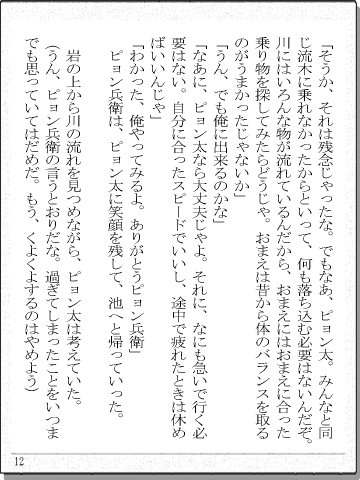 「そうか、それは残念じゃったな。でもなあ、ピョン太。みんなと同
じ流木に乗れなかったからといって、何も落ち込む必要はないんだぞ。
川にはいろんな物が流れているんだから、おまえにはおまえに合った
乗り物を探してみたらどうじゃ。おまえは昔から体のバランスを取る
のがうまかったじゃないか」
「うん、でも俺に出来るのかな」
「なあに、ピョン太なら大丈夫じゃよ。それに、なにも急いで行く必
要はない。自分に合ったスピードでいいし、途中で疲れたときは休め
ばいいんじゃ」
「わかった、俺やってみるよ。ありがとうピョン兵衛」
ピョン兵衛は、ピョン太に笑顔を残して、池へと帰っていった。
岩の上から川の流れを見つめながら、ピョン太は考えていた。
（うん、ピョン兵衛の言うとおりだな。過ぎてしまったことをいつま
でも思っていてはだめだ。もう、くよくよするのはやめよう）
12